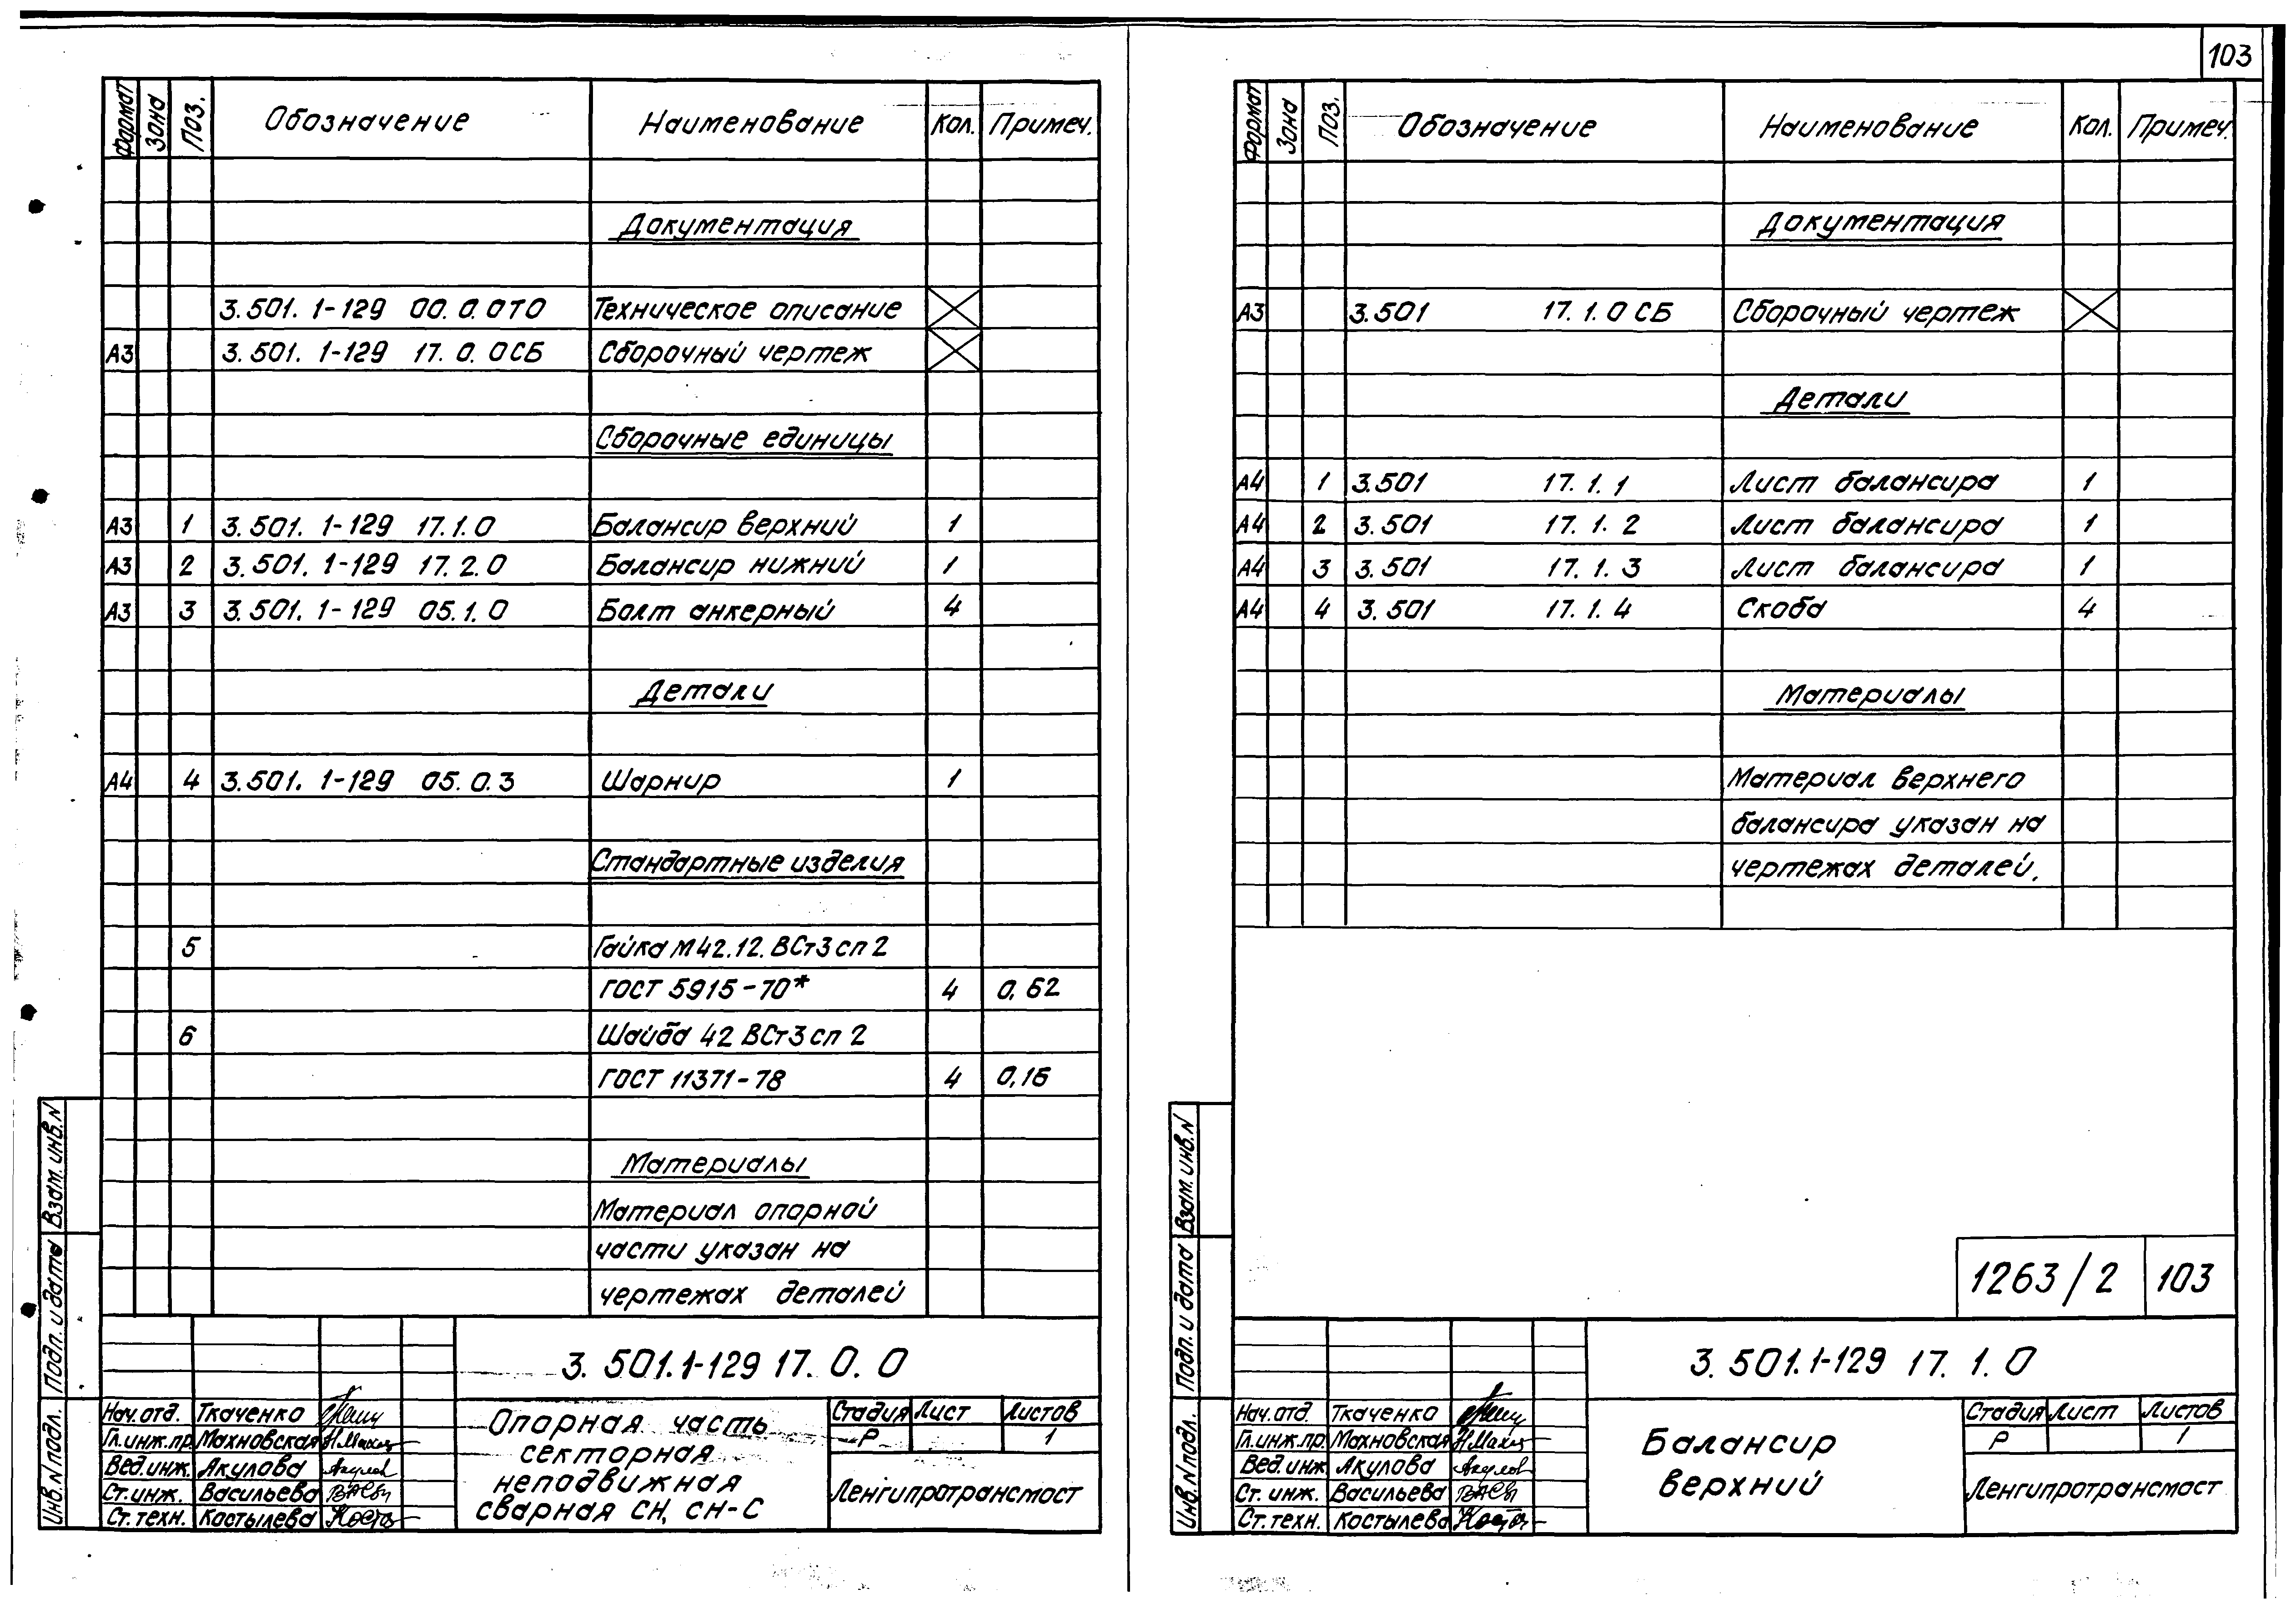 103
Формат Зона Поз. Обозначение Наименование Кол. Примеч.
Документация
3.501. 1-129 00.0.0ТО Техническое описание
А3 3.501. 1-129 17.0.0СБ Сборочный чертеж
Сборочные единицы
А3 1 3.501. 1-129 17.1.0 Балансир верхний 1
А3 2 3.501. 1-129 17.2.0 Балансир нижний 1
А3 3 3.501. 1-129 05.1.0 Болт анкерный 4
Детали
А4 4 3.501. 1-129 05.0.3 Шарнир 1
Стандартные изделия
5 Гайка М42.12.ВСт3сп2
ГОСТ 5915-70* 4 0,62
6 Шайба 42 ВСт3сп2
ГОСТ 11371-78 4 0,16
Материалы
Материал опорной
части указан на
чертежах деталей
Взам. инв. N
Подп. и дата
Инв. N подл.
3.501.1-129 17.0.0
Нач.отд. Ткаченко
Гл.инж.пр. Махновская
Вед.инж. Акулова
Ст.инж. Васильева
Ст.техн. Костылева
Опорная часть
секторная
неподвижная
сварная СН, СН-С
Стадия Лист Листов
Р 1
Ленгипротрансмост
Формат Зона Поз. Обозначение Наименование Кол. Примеч.
Документация
А3 3.501 17.1.0 СБ Сборочный чертеж
Детали
А4 1 3.501 17.1.1 Лист балансира 1
А4 2 3.501 17.1.2 Лист балансира 1
А4 3 3.501 17.1.3 Лист балансира 1
А4 4 3.501 17.1.4 Скоба 4
Материалы
Материал верхнего
балансира указан на
чертежах деталей.
Взам. инв. N
Подп. и дата
Инв. N подл.
1263/2 103
3.501.1-129 17.1.0
Нач.отд. Ткаченко
Гл.инж.пр. Махновская
Вед.инж. Акулова
Ст.инж. Васильева
Ст.техн. Костылева
Балансир
верхний
Стадия Лист Листов
Р 1
Ленгипротрансмост